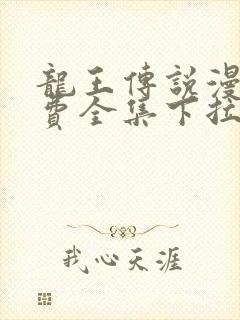 龍王傳說漫
費全集下拉
我心天涯